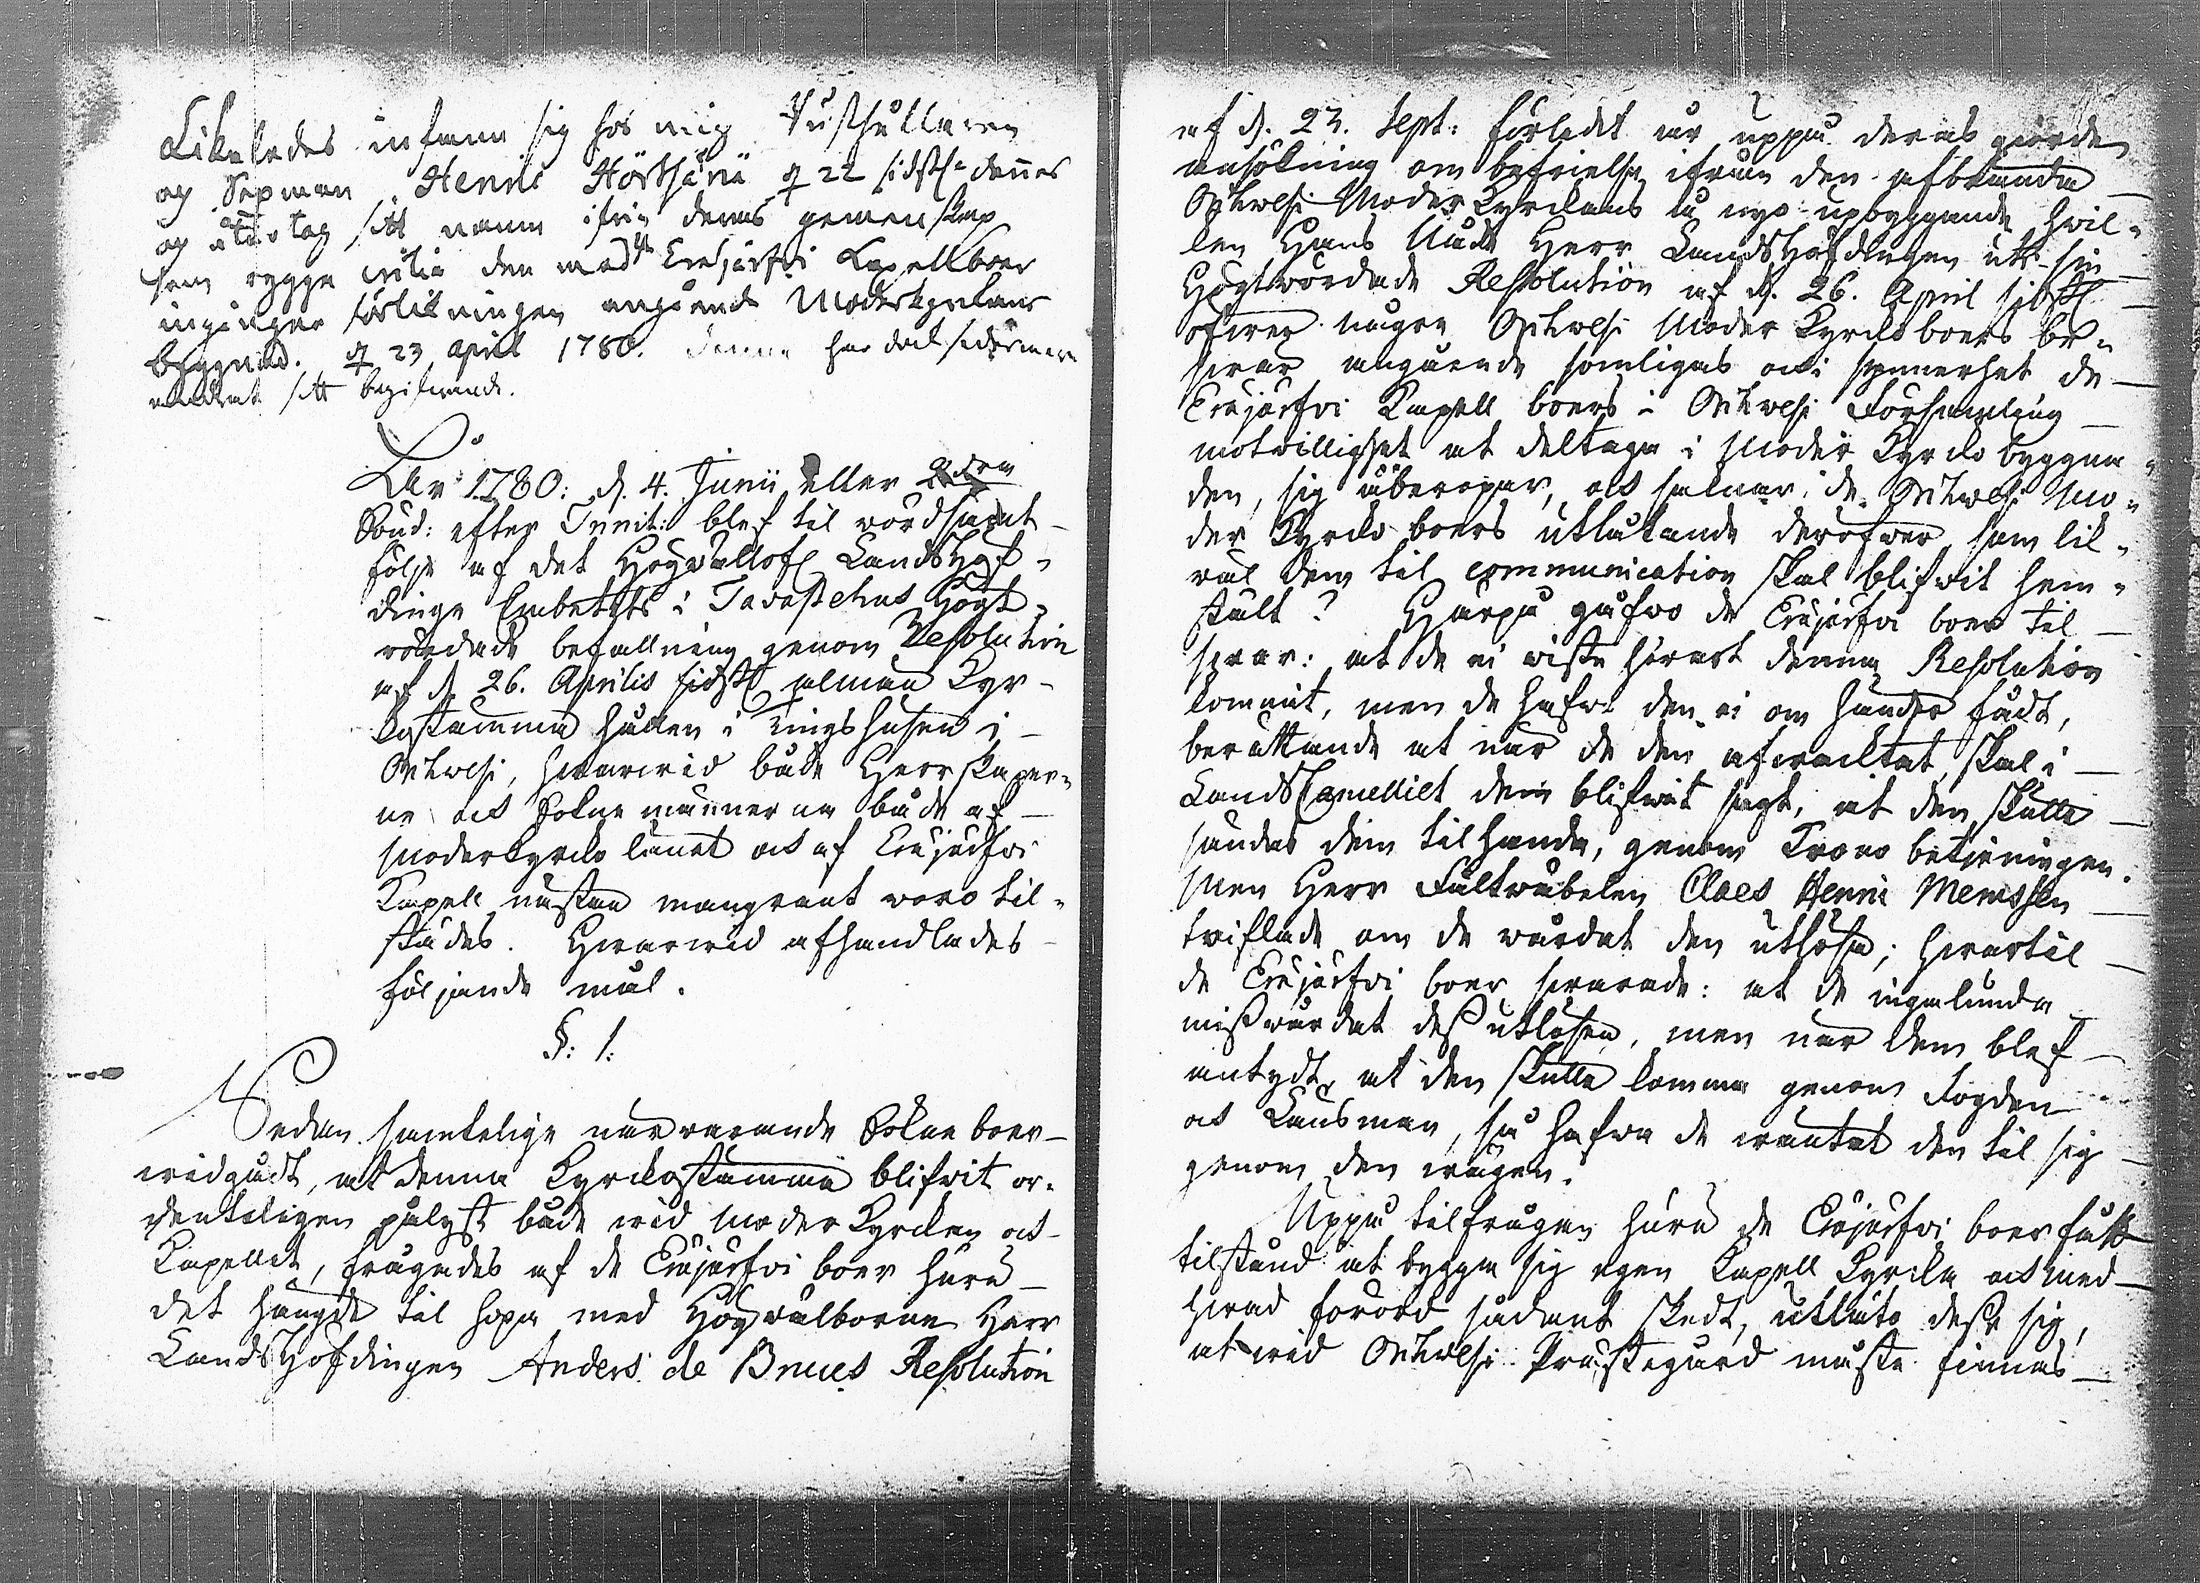 Likaledes infann sig hos mig
og Sexman Henric Hörtsänä d 22 sidstl: dennes
og återtog sitt namn ifrån deras gemenskap
som rygga wilja den med Eräjärfvi Kapellboer
ingångne förlikningen angående Moderkyrkans
byggnad. d 23 april 1780. Denne har dock sedermera
ändrat sitt begifwande.
År 1780: d. 4. Junii eller 2dra
Sönd: efter Trinit: blef til wördsamt
följe af det Högvällofl Landshöf-
dinge Embetets i Tavastehus Högt-
wördade befallning genom Resolution
af d 26. Aprilis sidstl almän Kyr-
kostämma hållen i Tingshusen i
Orihwesi, hwarwid både Herrskaper-
ne och Sokne männerna både af
Moderkyrko länet och af Eräjärfvi
Kapell nästan mangrant woro til-
städes. Hwarwid afhandlades
följande mål.
§: 1:
Sedan samtelige närwarande Sokne boer
widgådt, at denna Kyrckostämma blifvit or-
denteligen pålyst både wid Moder Kyrckan och
Kapellet, frågades af de Eräjärfvi boer huru
det hängde til hopa med Högwälborne Herr
LandsHöfdingen Anders de Bruces Resolution
af d. 23. Sept: förledit år uppå deras giorde
ansökning om befrielse ifrån den afbrända
Orihwesi Moder Kyrckans å nyo upbyggande hwil-
ken Hans Nåde Herr LandsHöfdingen uti sin
Högtwördade Resolution af d. 26. April sidstl
öfwer någre Orihwesi Moder Kyrcko boers be-
swär angående somligas och i synnerhet de
Eräjärfvi Kapell boers i Orihwesi Församling
motwillighet at deltaga i Moder Kyrcko byggna-
den, sig åberopar, och saknar de Orihwesi Mo-
der Kyrcko boers utlåtande deröfwer, som lik-
wäl dem til communication skal blifvit hem-
stält? Härpå gåfwo de Eräjärfvi boer til
swar: at de ei wiste hwart denna Resolution
kommit, men de hafwa den ei om händer fådt,
berättande at när de den afwacktat, skal i
LandsCancelliet dem blifwit sagt, at den skulle
sändas dem tilhanda, genom Krono betieningen.
Men Herr Fältwäbelen Claes Henric Memssen
twiflade om de wårdat den utlösa; hwartil
de Eräjärfvi boer swarade: at de ingalunda
misswårdat dess utlösen, men när dem blef
antydt, at den skulle komma genom Fogden
och Länsman, så hafwa de wäntat den til sig
genom den wägen.
Uppå tilfrågan huru de Eräjärfvi boer fått
tilstånd at bygga sig egen Kapell Kyrcka och med
hwad förord sådant skedt, utläto desse sig,
at wid Orihwesi Prästegård måste finnas